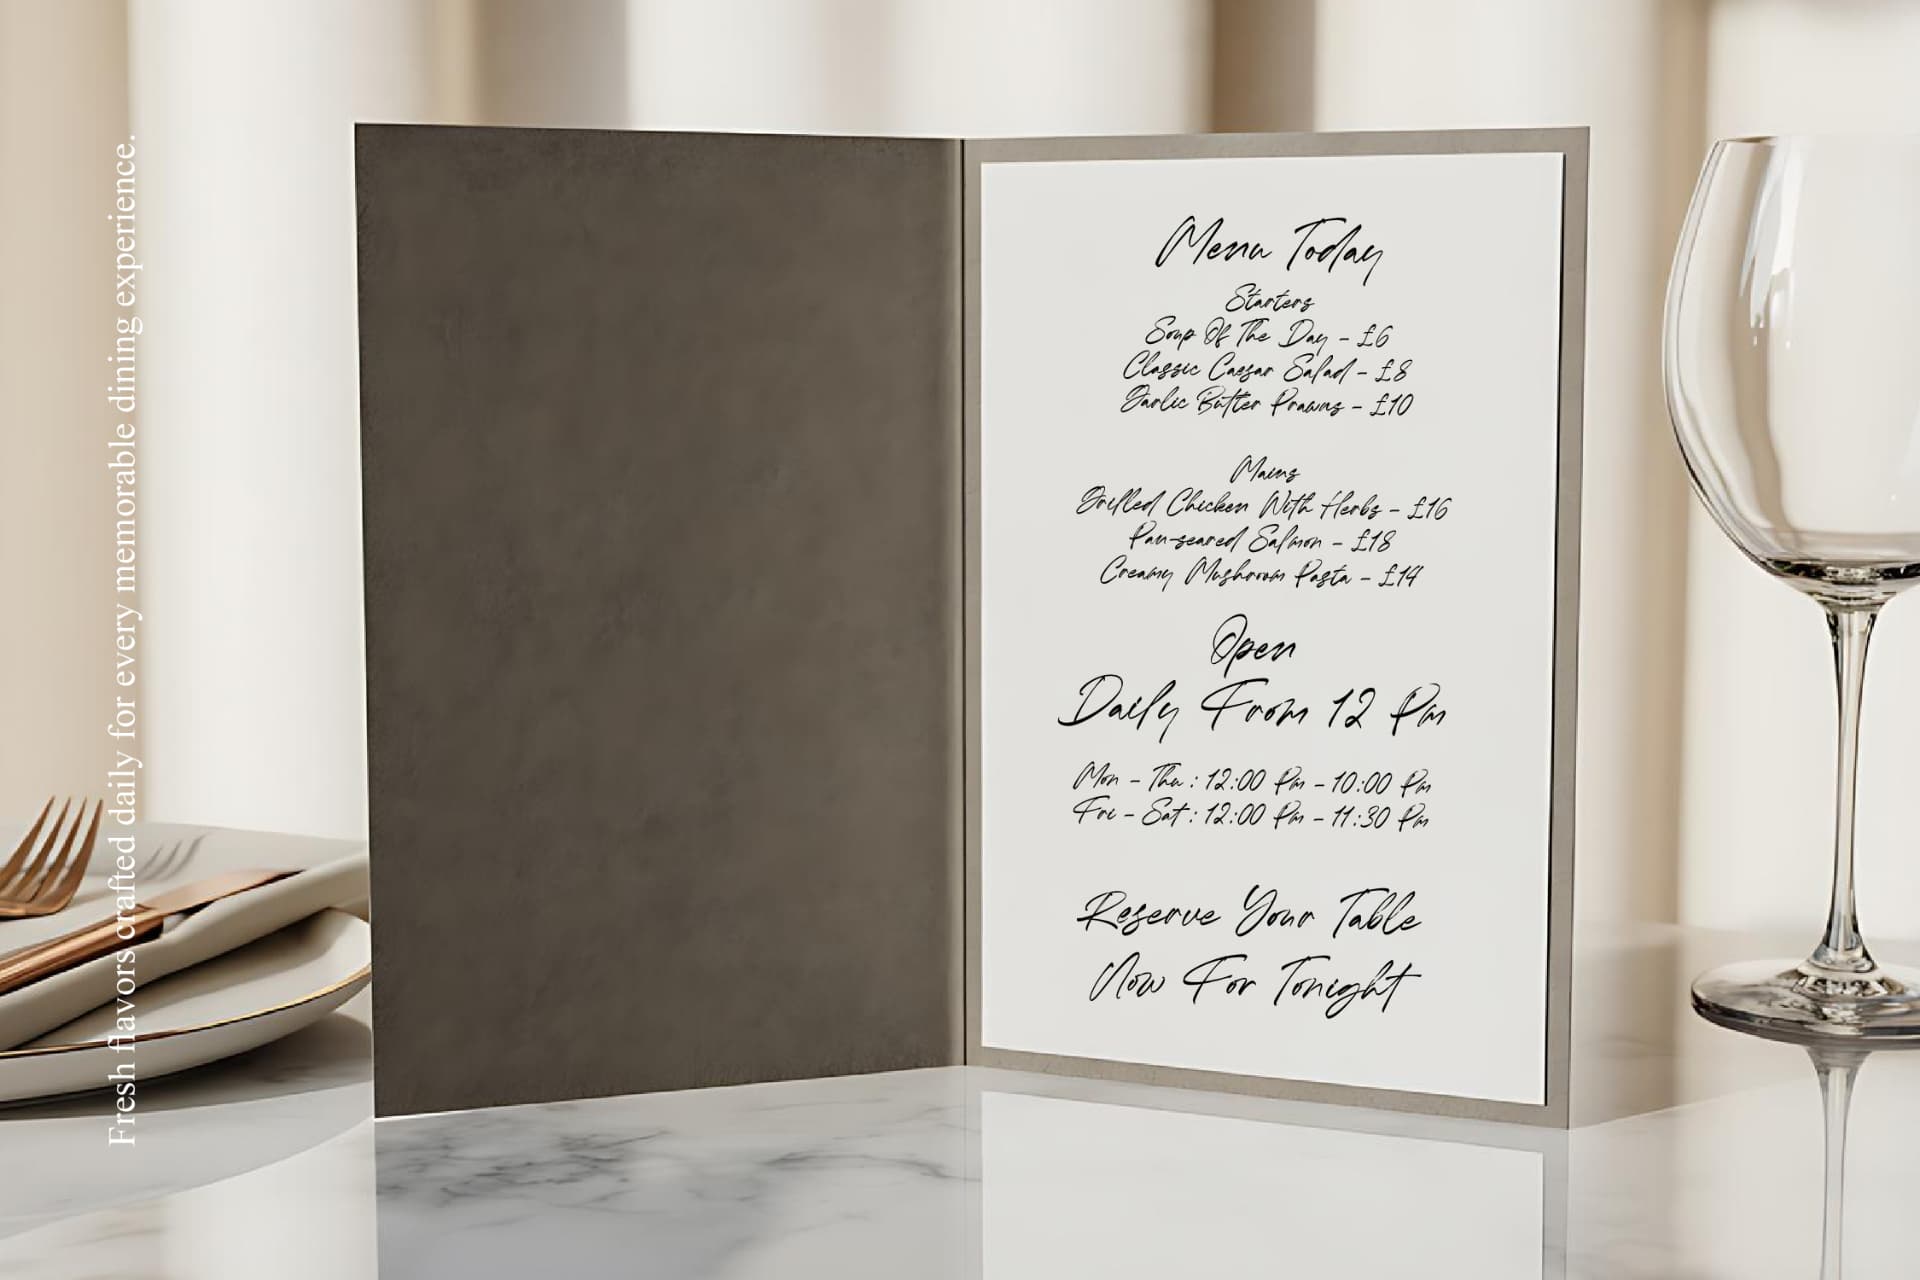 Fresh flavors crafted daily for every memorable dining experience.
Menu Today
Starters
Soup Of The Day - £6
Classic Caesar Salad - £8
Garlic Butter Prawns - £10
Mains
Grilled Chicken With Herbs - £16
Pan-seared Salmon - £18
Creamy Mushroom Pasta - £14
Open
Daily From 12 Pm
Mon - Thu : 12:00 Pm - 10:00 Pm
Fri - Sat : 12:00 Pm - 11:30 Pm
Reserve Your Table
Now For Tonight